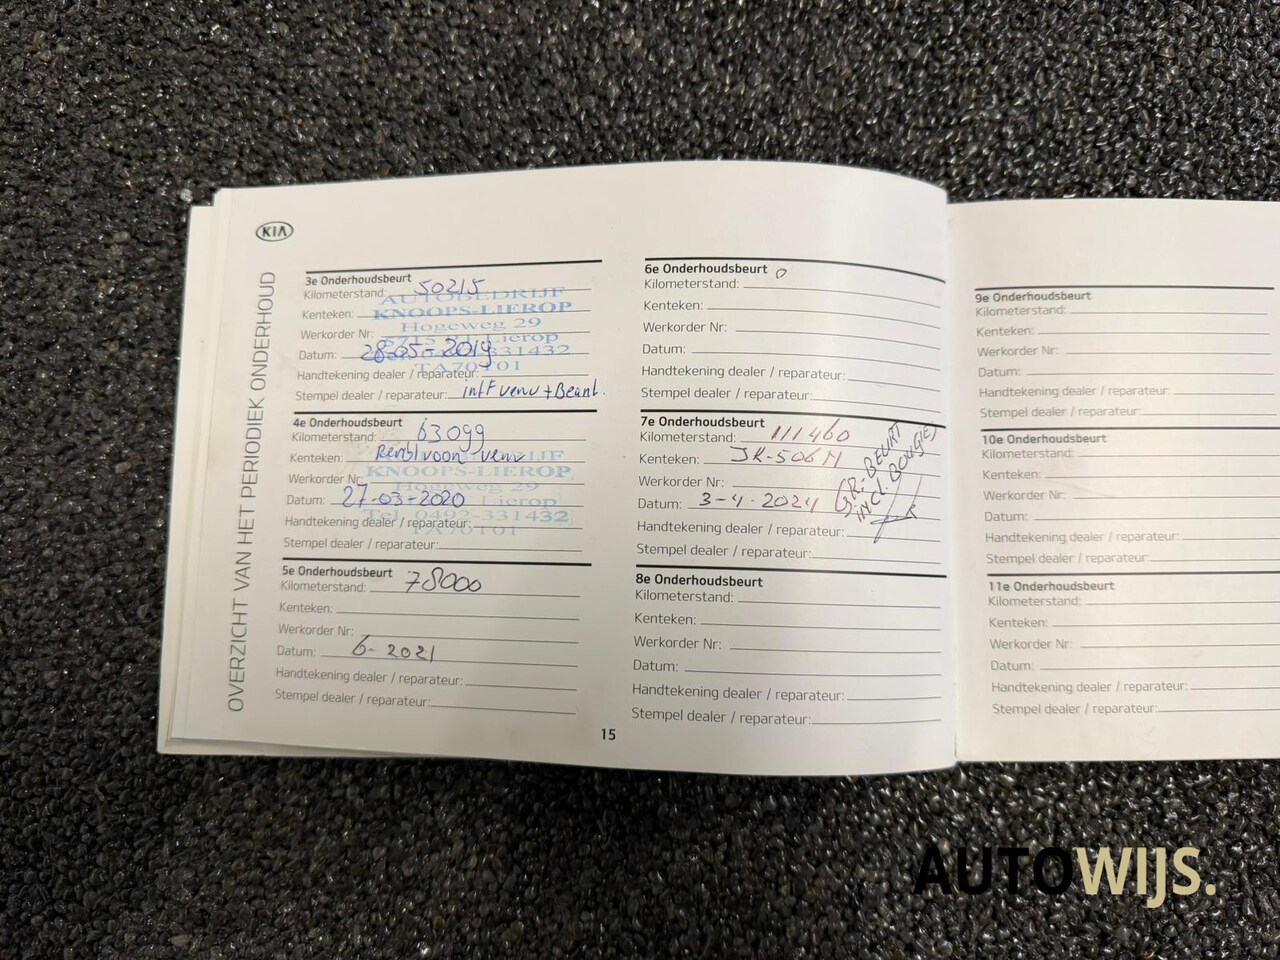 KIA
OVERZICHT VAN HET PERIODIEK ONDERHOUD
3e Onderhoudsbeurt
Kilometerstand: 50215
AUTOBEDRIJF
Kenteken: KNOOPS-LIEROP
Werkorder Nr: Hogeweg 29
Lierop
Datum: 28-05-2019 331432
Handtekening dealer / reparateur: TA70T01
Stempel dealer / reparateur: intF verv + Beanl.
4e Onderhoudsbeurt
Kilometerstand: 63099
Kenteken: verv
KNOOPS-LIEROP
Werkorder Nr: Hogeweg 29
Datum: 27-03-2020 Lierop
Handtekening dealer / reparateur: Tel. 0492-331432
TA70T01
Stempel dealer / reparateur:
5e Onderhoudsbeurt
Kilometerstand: 78000
Kenteken:
Werkorder Nr:
Datum: 6-2021
Handtekening dealer / reparateur:
Stempel dealer / reparateur:
6e Onderhoudsbeurt
Kilometerstand:
Kenteken:
Werkorder Nr:
Datum:
Handtekening dealer / reparateur:
Stempel dealer / reparateur:
7e Onderhoudsbeurt
Kilometerstand: 111460
Kenteken: JK-506-N
Werkorder Nr:
Datum: 3-4-2024
GR-BEURT
INCL. BOUGIES
Handtekening dealer / reparateur:
Stempel dealer / reparateur:
8e Onderhoudsbeurt
Kilometerstand:
Kenteken:
Werkorder Nr:
Datum:
Handtekening dealer / reparateur:
Stempel dealer / reparateur:
15
9e Onderhoudsbeurt
Kilometerstand:
Kenteken:
Werkorder Nr:
Datum:
Handtekening dealer / reparateur:
Stempel dealer / reparateur:
10e Onderhoudsbeurt
Kilometerstand:
Kenteken:
Werkorder Nr:
Datum:
Handtekening dealer / reparateur:
Stempel dealer / reparateur:
11e Onderhoudsbeurt
Kilometerstand:
Kenteken:
Werkorder Nr:
Datum:
Handtekening dealer / reparateur:
Stempel dealer / reparateur:
AUTOWIJS.